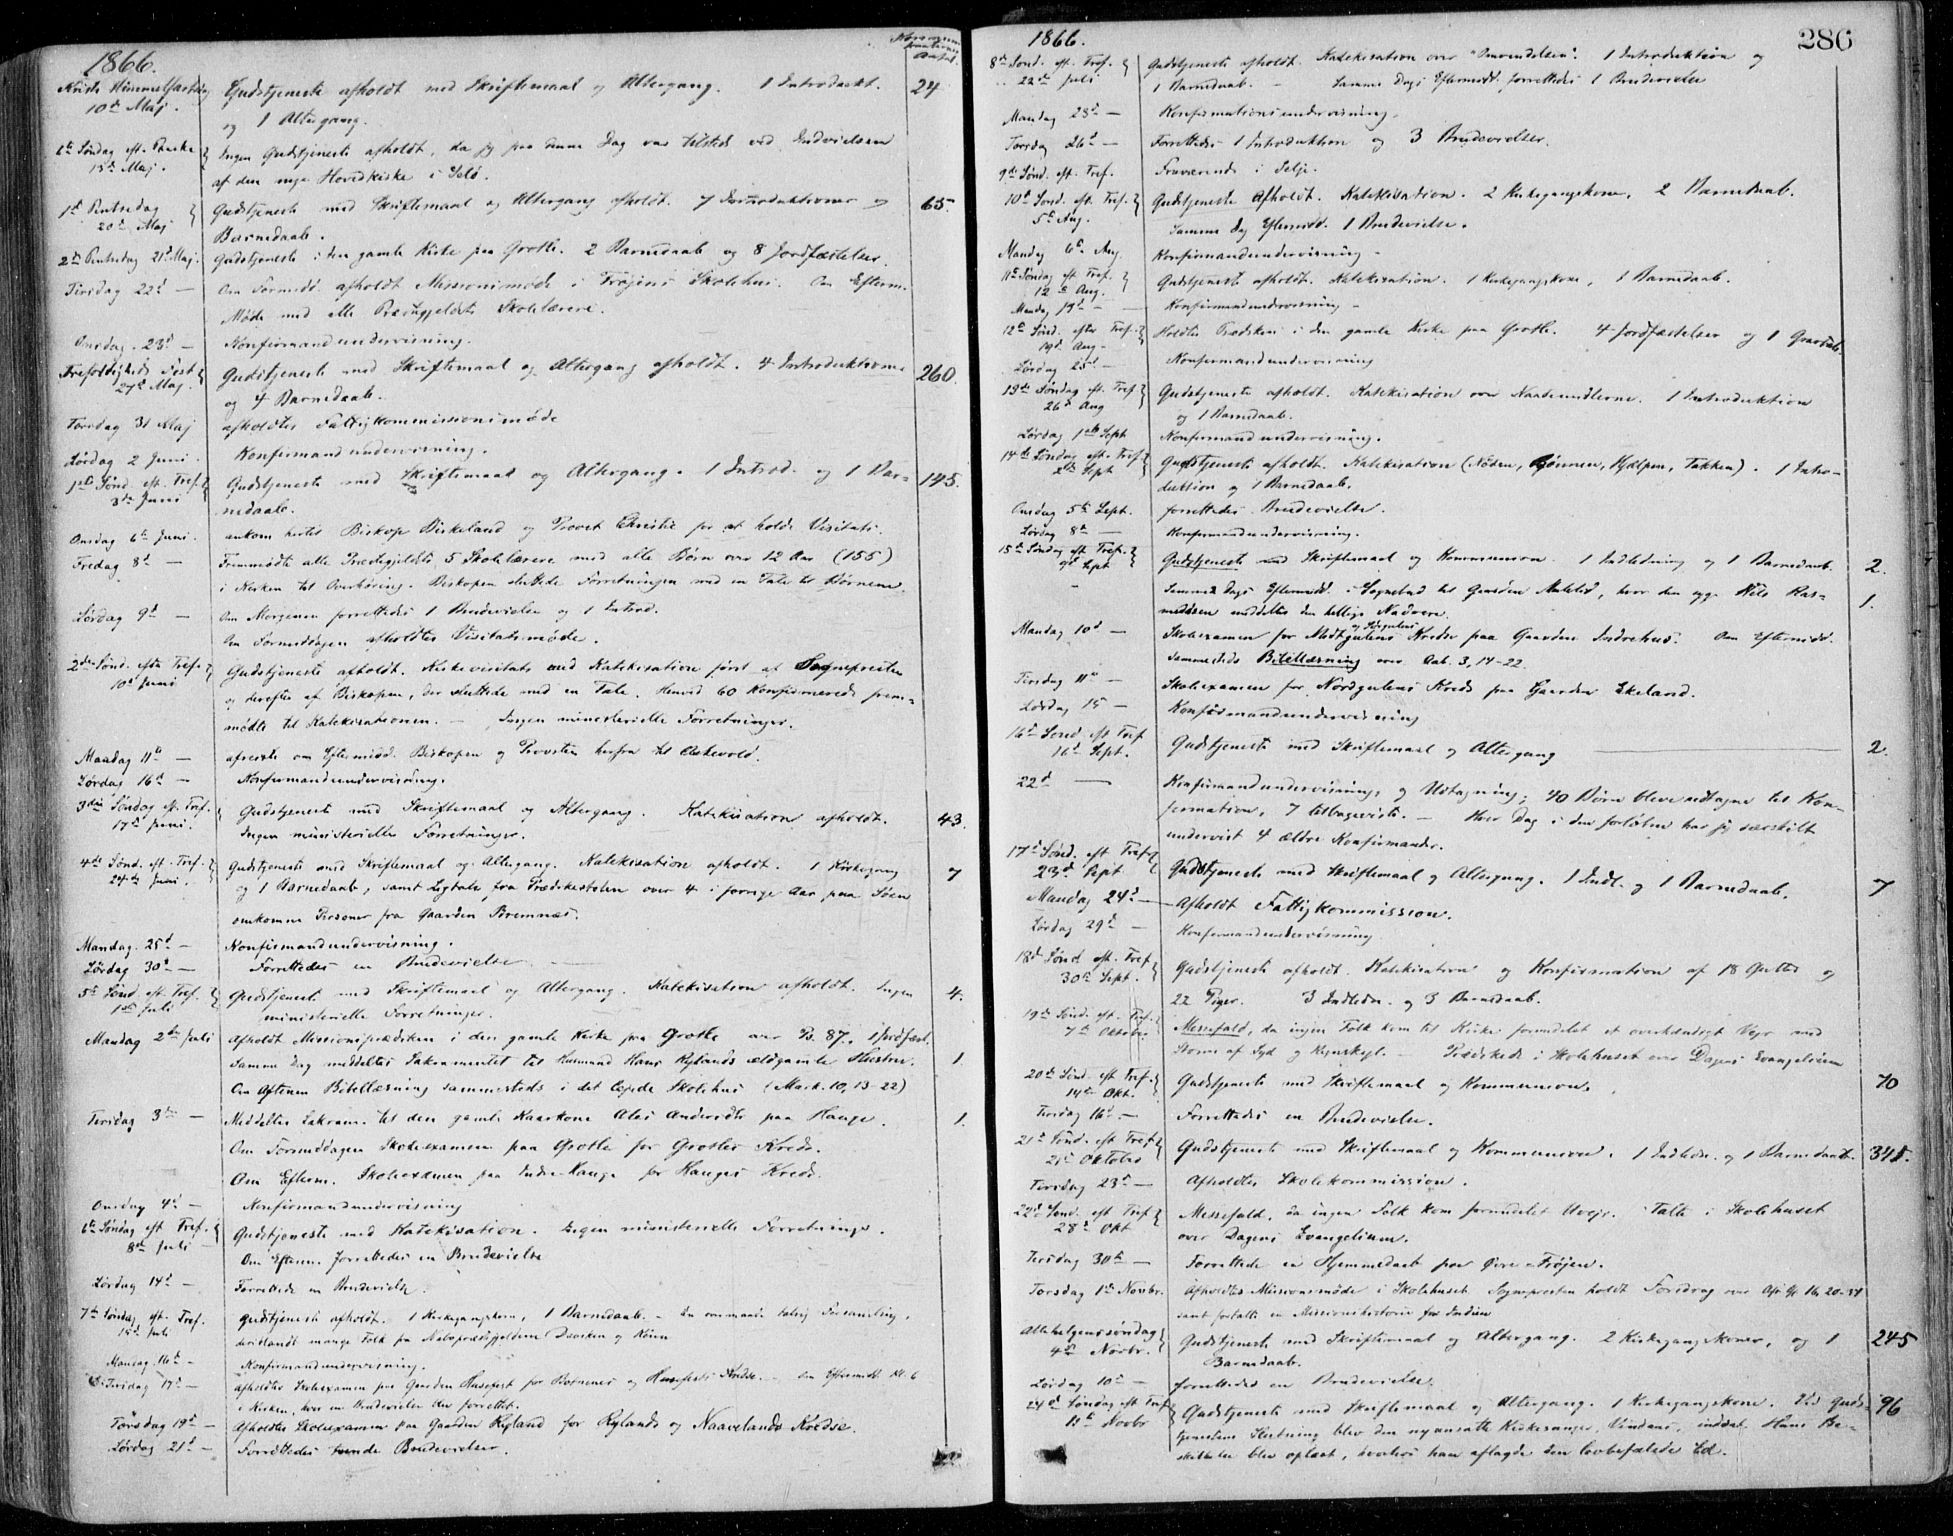 1866.
Kommunikanternes Antal.
Kristi Himmelfartsdag Gudstjeneste afholdt med Skriftemaal og Altergang. 1 Introdukt. 24
10de Maj. og 1 Altergang.
6te Søndag eft. Paaske Ingen Gudstjeneste afholdt, da jeg paa denne Dag var tilstede ved Indvielsen
13de Maj. af den nye Hovedkirke i Selø.
1ste Pintsedag Gudstjeneste med Skriftemaal og Altergang afholdt. 7 Introduktioner og 65.
20de Maj Barnedaab.
2den Pintsedag 21de Maj. Gudstjeneste i den gamle Kirke paa Grotle. 2 Barnedaab og 8 Jordfæstelser.
Tirsdag 22d — Om Formidd. afholdt Missionsmøde i Frøjens Skolehus. Om Efterm.
Møde med alle Præstegjeldets Skolelærere.
Onsdag 23d — Konfirmandundervisning.
Trefoldigheds Fest Gudstjeneste med Skriftemaal og Altergang afholdt. 4 Introduktioner 260.
27de Maj. og 4 Barnedaab.
Torsdag 31 Maj afholdtes Fattigkommissionsmøde
Lørdag 2 Juni. Konfirmandundervisning.
1ste Sønd. eft. Tref. Gudstjeneste med Skriftemaal og Altergang. 1 Introd. og 1 Bar- 145.
3de Juni nedaab.
Onsdag 6te Juni. ankom hertil Biskop Birkeland og Provst Christie for at holde Visitats.
Fredag 8d — Fremmødte alle Præstegjeldets 5 Skolelærere med alle Børn over 12 Aar (155)
i Kirken til Overhøring. Biskopen sluttede Forretningen med en Tale til Børnene.
Lørdag 9d — Om Morgenen forrettedes 1 Brudevielse og 1 Introd.
Om Formiddagen afholdtes Visitatsmøde.
2den Sønd. efter Tref. Gudstjeneste afholdt. Kirkevisitats med Katekisation først af Sognepresten
10de Juni og derefter af Biskopen, der sluttede med en Tale. Henved 60 Konfirmerede frem-
mødte til Katekisationen. — Ingen ministerielle Forretninger.
Mandag 11te — afreiste om Eftermidd. Biskopen og Provsten herfra til Askevold.
Lørdag 16d — Konfirmandundervisning.
3die Søndag eft. Tref. Gudstjeneste med Skriftemaal og Altergang. Katekisation afholdt. 43.
17de Juni. Ingen ministerielle Forretninger.
4de Sønd. eft. Tref. Gudstjeneste med Skriftemaal og Altergang. Katekisation afholdt. 1 Kirkegang 7
24de Juni. og 1 Barnedaab, samt Ligtale fra Prædikestolen over 4 i forrige Aar paa Søen
omkomne Personer fra Gaarden Bremnes.
Mandag 25d — Konfirmandundervisning.
Lørdag 30d — Forrettedes en Brudevielse.
5te Sønd. eft. Tref. Gudstjeneste med Skriftemaal og Altergang. Katekisation afholdt. Ingen 4.
1ste Juli ministerielle Forretninger.
Mandag 2den Juli Afholdt Missionsprædiken i den gamle Kirke paa Grotle over Ps. 87. 1 Jordfæst.
Samme Dag meddeltes Sakramentet til Husmand Hans Rylands ældgamle Hustru. 1.
Om Aftenen Bibellæsning sammesteds i det lejede Skolehus (Mark. 10, 13-22)
Tirsdag 3die — Meddeltes Sakram. til den gamle Kaarkone Ales Andersdtr paa Hauge. 1.
Om Formiddagen Skoleexamen paa Grotle for Grotles Kreds.
Om Efterm. Skoleexamen paa Indre-Hauge for Hauges Kreds.
Onsdag 4d — Konfirmandundervisning
6te Søndag eft Tref. Gudstjeneste med Katekisation. Ingen ministerielle Forretninger.
8de Juli Om Efterm. forrettedes en Brudevielse
Lørdag 14d — Forrettede en Brudevielse.
7de Søndag eft. Tref. Gudstjeneste afholdt. 1 Kirkegangskone, 1 Barnedaab. — En overmaade talrig Forsamling,
15de Juli deriblandt mange Folk fra Nabopræstegjeldene Davken og Kinn.
Mandag 16d — Konfirmandundervisning.
Tirsdag 17d — afholdtes Skoleexamen paa Gaarden Husefest for Botnenes og Husefests Kredse. — Om Eftermidd. Kl. 6
i Kirken, hvor en Brudevielse blev forrettet.
Torsdag 19d — Afholdtes Skoleexamen paa Gaarden Ryland for Rylands og Naavelands Kredse.
Lørdag 21d — Forrettedes Brudevielser.
1866.
286
8de Sønd. eft. Tref. Gudstjeneste afholdt. Katekisation over "Omvendelsen". 1 Introduktion og
22de Juli 1 Barnedaab. — Samme Dags Eftermidd. forrettedes 1 Brudevielse
Mandag 23d — Konfirmationsundervisning.
Torsdag 26d — Forrettedes 1 Introduktion og 3 Brudevielser.
9de Sønd. eft. Tref. Fraværende i Selje.
10de Sønd. eft. Tref. Gudstjeneste afholdt. Katekisation. 2 Kirkegangskone, 2 Barnedaab.
5te Aug. Samme Dag Eftermidd. 1 Brudevielse.
Mandag 6te Aug. Konfirmandundervisning.
11te Søndag eft Tref. Gudstjeneste afholdt. Katekisation. 1 Kirkegangskone, 1 Barnedaab.
12te Aug.
Mandag 13d — Konfirmandundervisning —
12te Sønd. efter Tref. Holdtes Prædiken i den gamle Kirke paa Grotle. 4 Jordfæstelser og 1
19de Aug.
Lørdag 25d — Konfirmandundervisning
13de Søndag eft. Tref. Gudstjeneste afholdt. Katekisation over Naademidlerne. 1 Introduktion
26d Aug og 1 Barnedaab.
Lørdag 1ste Sept Konfirmandundervisning.
14de Søndag eft. Tref Gudstjeneste afholdt. Katekisation (Nøden, Bønnen, Hjælpen, Takken). 1 Intro-
2den Sept duktion og 1 Barnedaab.
Onsdag 5te Sept. forrettedes Brudevielse.
Lørdag 8de — Konfirmandundervisning.
15de Søndag eft. Tref. Gudstjeneste med Skriftemaal og Kommunion. 1 Indledning og 1 Barnedaab. 2.
9de Sept
Samme Dags Eftermidd. i Sognebud til Gaarden Maletid, hvor den syge Nils Ras- 1.
mussen meddeltes den hellige Nadvere.
Mandag 10d — Skolexamen for Midtgulens og Sørgulens Kredse paa Gaarden Indrehus. Om Eftermidd.
sammesteds Bibellæsning over Aab. 3, 14-22.
Tirsdag 11te — Skoleexamen for Nordgulens Kreds paa Gaarden Ekeland.
Lørdag 15 — Konfirmandundervisning
16de Sønd. eft Tref Gudstjeneste med Skriftemaal og Altergang 2.
16d Sept.
22d — Konfirmandundervisning og Udtagning; 40 Børn bleve udtagne til Kon-
firmation, 7 tilbageviste. — Hver Dag i den forløbne har jeg særskilt
undervist 4 ældre Konfirmander.
17d Sønd. eft Tref Gudstjeneste med Skriftemaal og Altergang. 1 Indl. og 1 Barnedaab. 7
23d Sept
Mandag 24d — Afholdt Fattigkommission.
Lørdag 29d — Konfirmandundervisning
18d Sønd. eft. Tref Gudstjeneste afholdt. Katekisation og Konfirmation af 18 Gutter og
30te Sept. 22 Piger. 3 Indledn. og 3 Barnedaab.
19de Sønd. eft. Tref. Messefald, da ingen Folk kom til Kirke formedelst et overhændigt Vejr med
7de Oktober Storm af Syd og Regnskyl. — Prædikede i Skolehuset over Dagens Evangelium
20de Sønd. eft Tref. Gudstjeneste med Skriftemaal og Kommunion. 70
14de Okt.
Tirsdag 16d — Forrettedes en Brudevielse.
21d Sønd. eft Tref Gudstjeneste med Skriftemaal og Kommunion. 1 Indledn. og 1 Barnedaab. 345.
21d Oktober
Tirsdag 23d — Afholdtes Skolekommission.
22d Sønd. eft Tref Messefald, da ingen Folk kom formedelst Uvejr. Talte i Skolehuset
28de Okt over Dagens Evangelium.
Tirsdag 30te — Forrettede en Hjemmedaab paa Øvre-Frøjen.
Torsdag 1ste Novbr. Afholdtes Missionsmøde i Skolehuset. Sognepresten holdt Foredrag over Ap. Gj. 16, 20-34
samt fortalte en Missionshistorie fra Indien
Allehelgenssøndag Gudstjeneste med Skriftemaal og Altergang. 2 Kirkegangskoner, og 1 245
4de Novbr. Barnedaab.
Lørdag 10d — forrettedes en Brudevielse.
24de Søndag eft Tref Gudstjeneste med Skriftemaal og Altergang. 1 Kirkegangskone. Ved Guds- 96
11te Novbr tjenestens Slutning blev den nyansatte Kirkesanger, Vindenes, indsat. Hans Be-
skikkelse blev oplæst, hvorhos han aflagde den lovbefalede Ed.